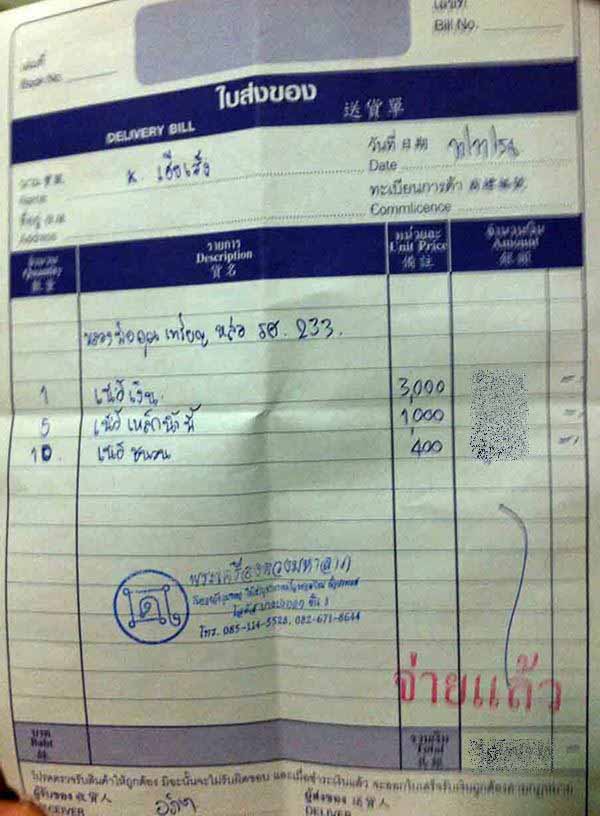 เลขที่
Bill No.
เล่มที่
Book No.
ใบส่งของ 送貨單
DELIVERY BILL
วันที่ 日期
Date
นาม
Name
K.
ทะเบียนการค้า
Commlicence
ที่อยู่
Address
จำนวน
Quantity
數量
รายการ
Description
貨名
หน่วยละ
Unit Price
備註
จำนวนเงิน
Amount
銀額
หลวงพ่อคูณ เหรียญ หล่อ รศ. 233.
1 เนื้อเงิน 3,000
5 เนื้อเหล็กน้ำพี้ 1,000
10. เนื้อ ชนวน 400
พระเครื่องหลวงมหาลาภ
ชั้น 1
โทร. 085-114-5528, 082-671-8644
จ่ายแล้ว
บาท
Baht
รวมเงิน
Total
โปรดตรวจรับสินค้าให้ถูกต้อง มิฉะนั้นจะไม่รับผิดชอบ และเมื่อชำระเงินแล้ว จะออกใบเสร็จรับเงินถูกต้องตามกฎหมาย
ผู้รับของ 收貨人
ผู้ส่งของ 送貨人